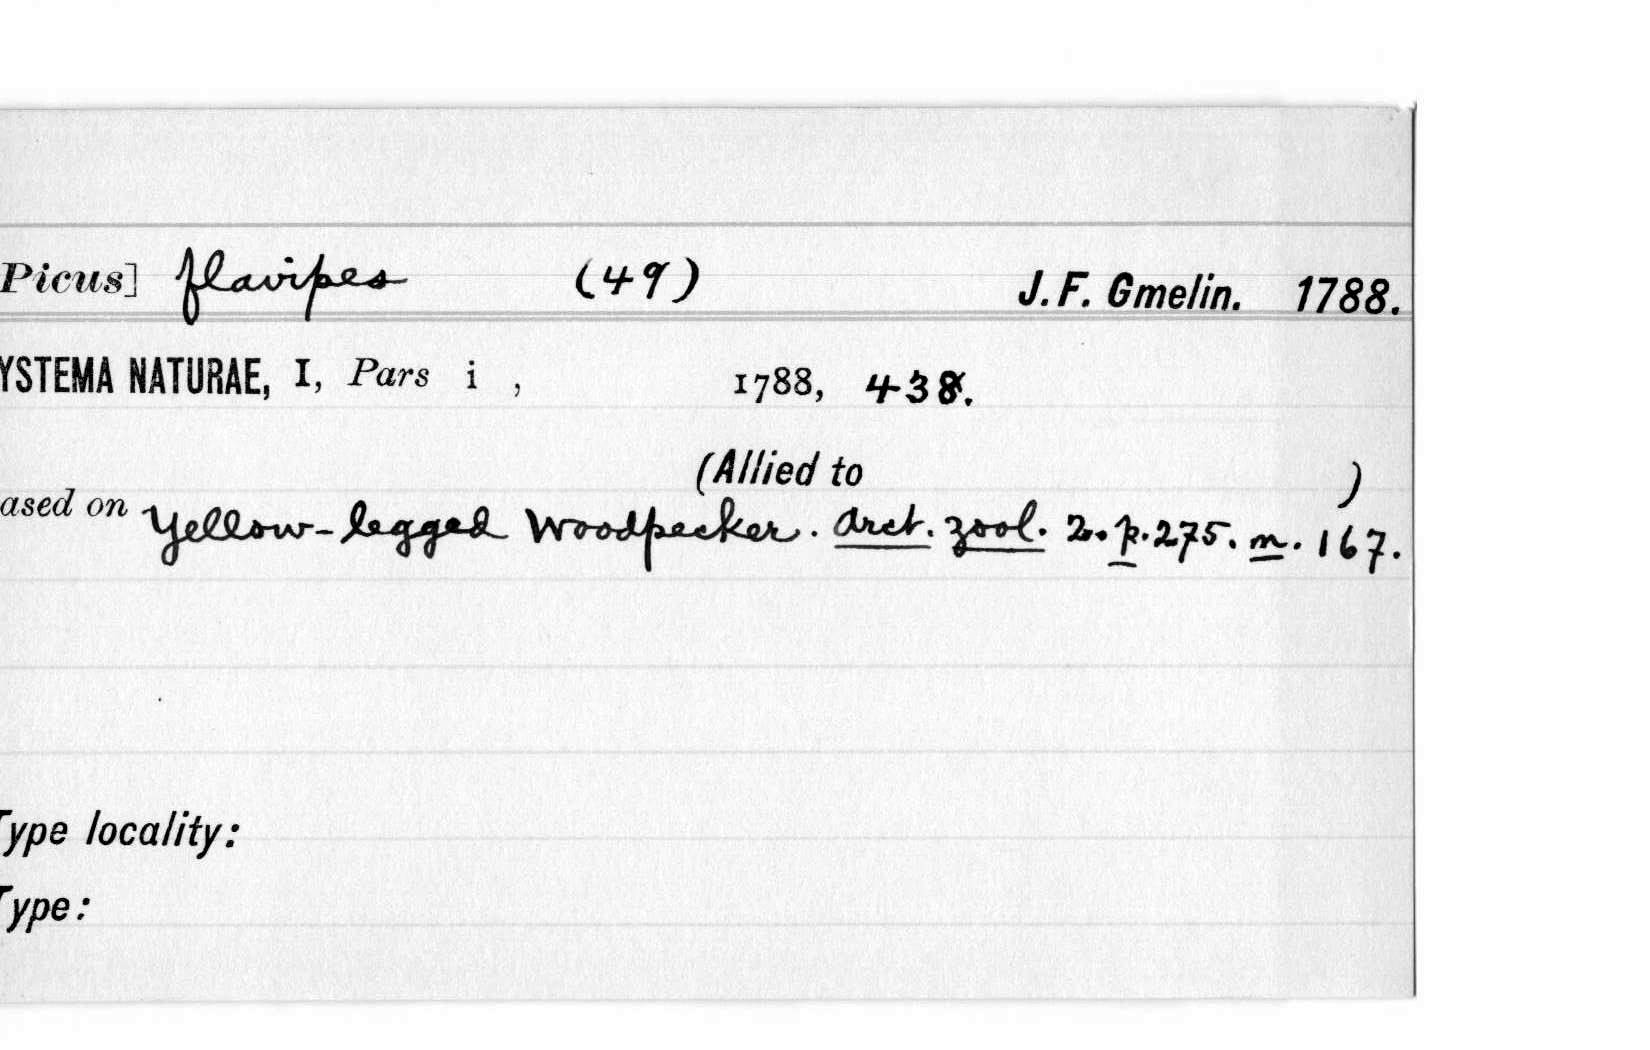 Picus] flavipes (49) J. F. Gmelin. 1788.
YSTEMA NATURAE, I, Pars i , 1788, 438.
(Allied to )
ased on Yellow-legged Woodpecker. Arct. zool. 2. p. 275. n. 167.
Type locality:
Type: